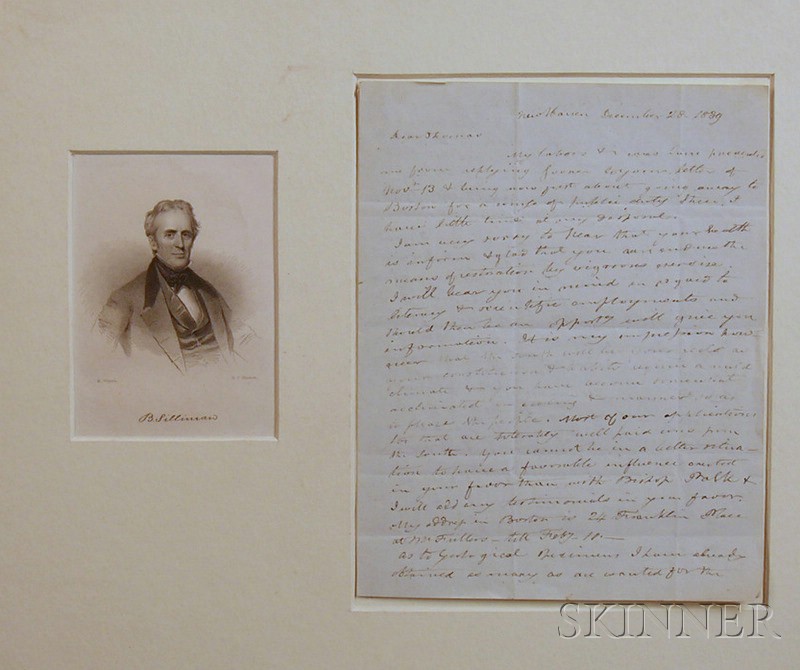 New Haven December 28. 1839
Dear Thomas
My labors &
me from replying
Nov. 13 & being now just about going away to
Boston for a
have little time at my disposal
I am very sorry to hear that your health
is infirm & glad that you
means of restoration by vigorous exercise.
I will bear you in mind in regard to
literary & scientific employments and
should there be an opporty will give you
information. It is my impression how-
ever that the South will be your
your constitution & habits require a mild
climate & you have become somewhat
acclimated
to please the people. Most of our applications
for that are tolerably well paid are from
the South. You cannot be in a better situa-
tion to have a favorable influence exerted
in your favor than with Bishop Polk &
I will add my testimonials in your favor.
My address in Boston is 24 Franklin Place
at Mr Fullers - till Feby. 10 -
As to Geological Specimens I have already
obtained as many as are wanted for the
B. Silliman
SKINNER